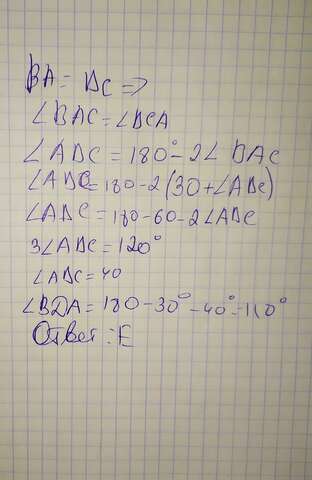 BA = DC =>
∠BAC = ∠DCA
∠ADC = 180° - 2∠DAC
∠ADC = 180 - 2(30 + ∠ADC)
∠ADC = 180 - 60 - 2∠ADC
3∠ADC = 120°
∠ADC = 40
∠BDA = 180 - 30° - 40° = 110°
Ответ: E